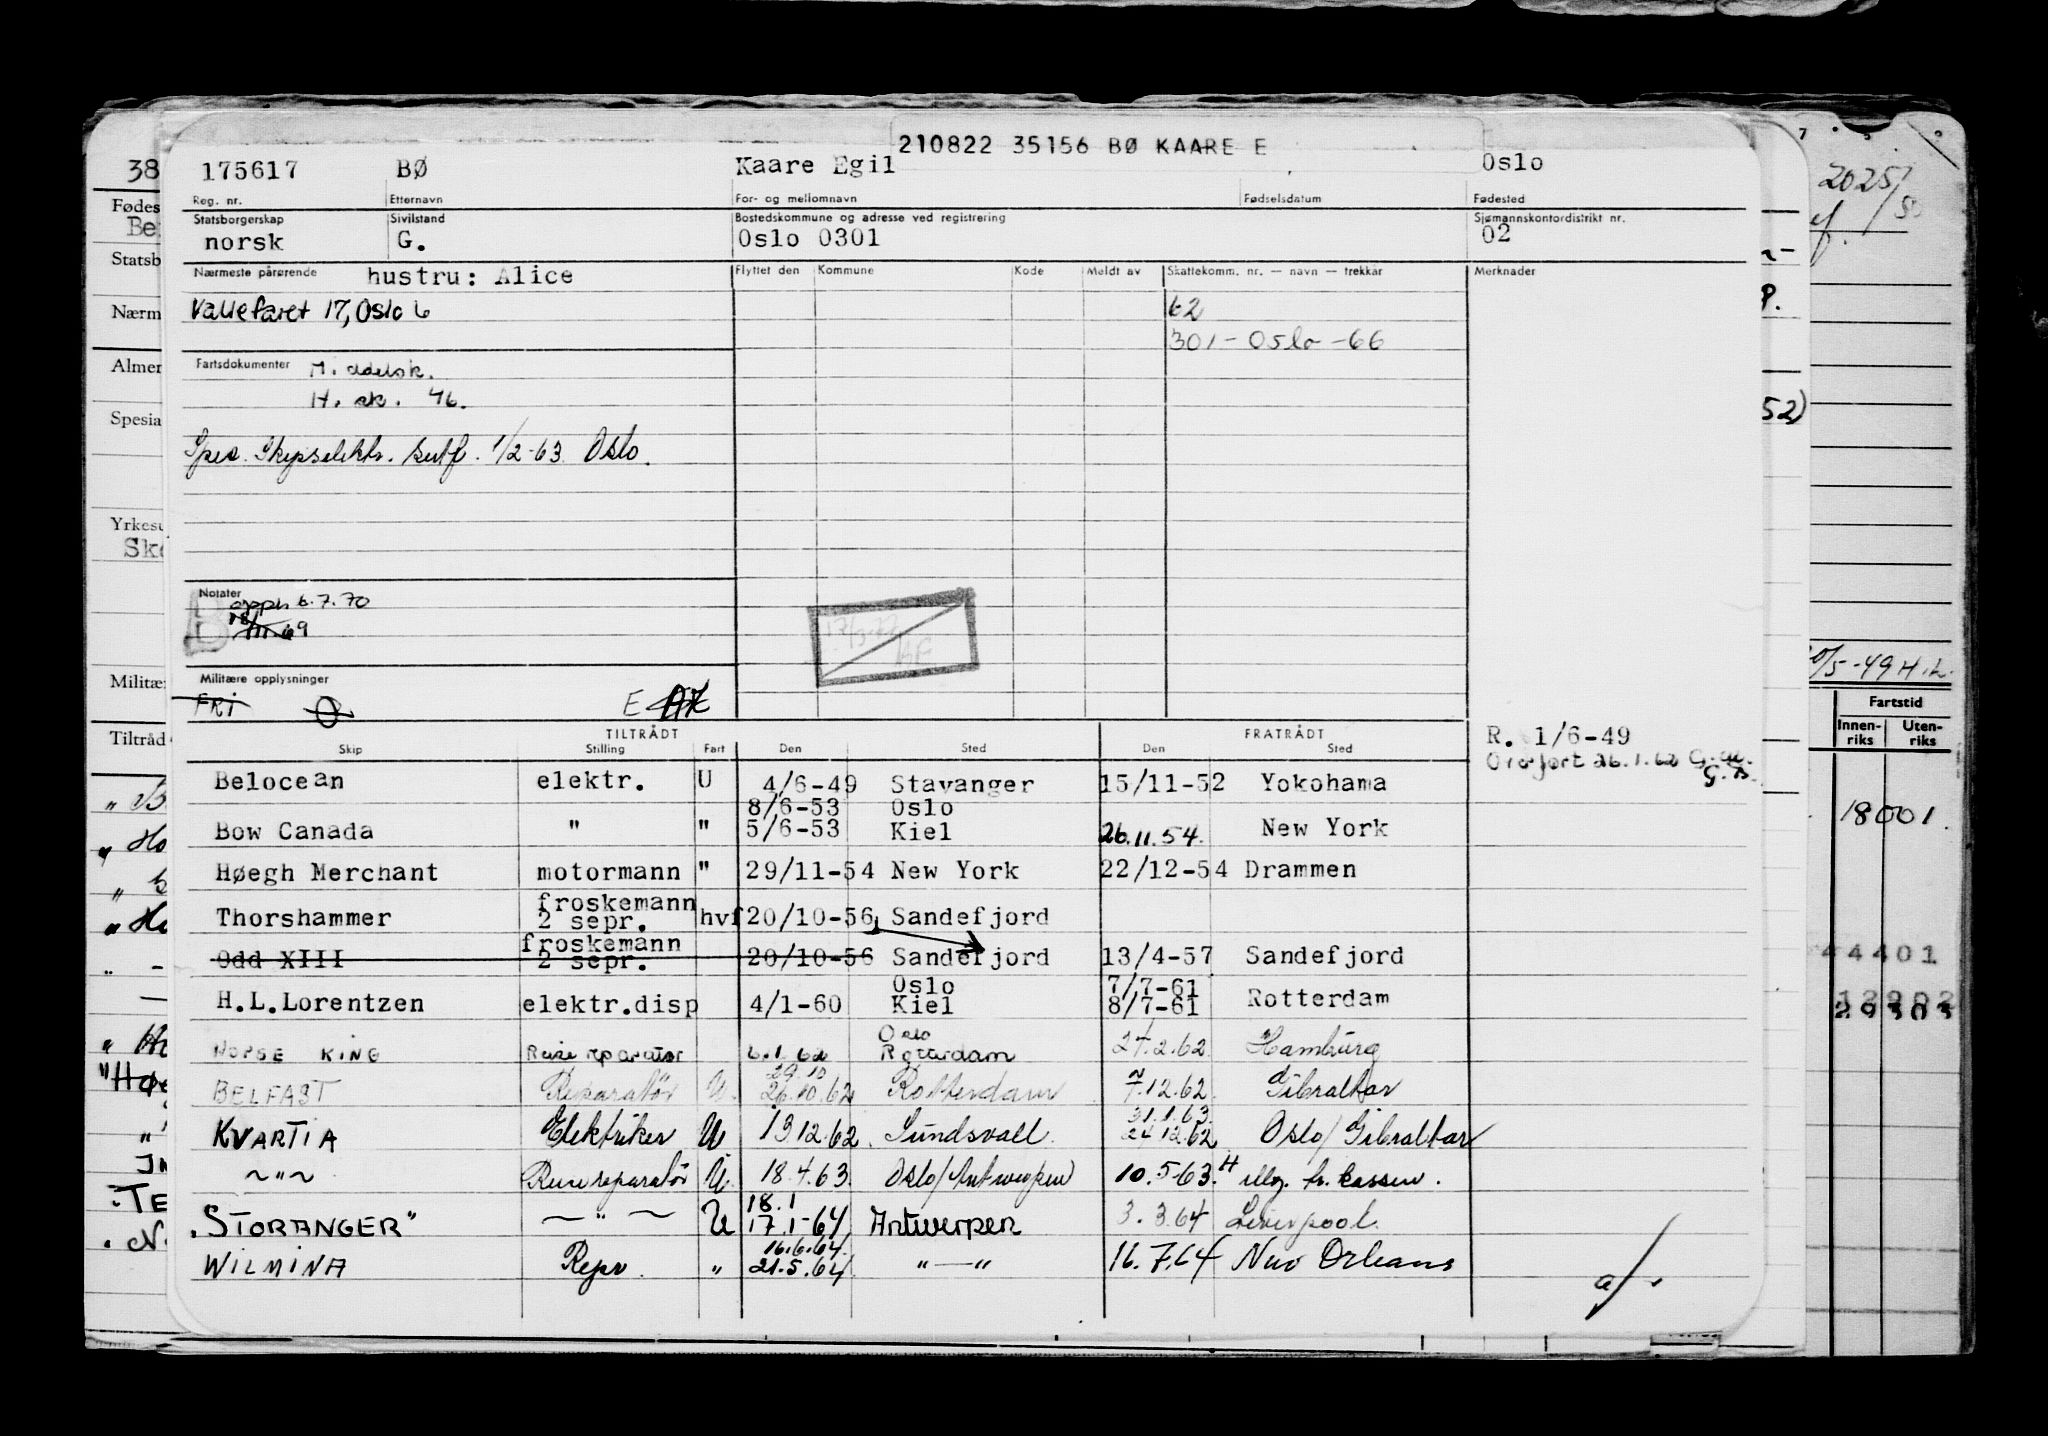 210822 35156 BØ KAARE E
175617 BØ Kaare Egil Oslo
Reg. nr. Etternavn For- og mellomnavn Fødselsdatum Fødested
Statsborgerskap Sivilstand Bostedskommune og adresse ved registrering Sjømannskontordistrikt nr.
norsk G. Oslo 0301 02
Nærmeste pårørende hustru: Alice Flyttet den Kommune Kode Meldt av Skattekomm. nr. — navn — trekkår Merknader
Vallefaret 17, Oslo 6 62
301 - Oslo - 66
Fartsdokumenter M.
H. sk. 46.
Spes. Skipselektr. sertf. 1/2-63 Oslo.
Notater
6.7.70
69
Militære opplysninger
FRI E
TILTRÅDT FRATRÅDT
Skip Stilling Fart Den Sted Den Sted
R. 1/6-49
Overført 26.1.62
Belocean elektr. U 4/6-49 Stavanger 15/11-52 Yokohama
8/6-53 Oslo
Bow Canada " " 5/6-53 Kiel 26.11.54. New York
Høegh Merchant motormann " 29/11-54 New York 22/12-54 Drammen
froskemann
Thorshammer 2 sepr. hvf 20/10-56 Sandefjord
froskemann
Odd XIII 2 sepr. 20/10-56 Sandefjord 13/4-57 Sandefjord
Oslo 7/7-61
H.L.Lorentzen elektr.disp 4/1-60 Kiel 8/7-61 Rotterdam
Oslo
NORSE KING Reisereparatør 6.1.62 Rotterdam 27.2.62 Hamburg
29.10
BELFAST Reparatør U. 26.10.62 Rotterdam 7.12.62 Gibraltar
31.1.63
KVARTIA Elektriker U 13 12.62. Sundsvall. 24 12.62 Oslo/Gibraltar
~"~ Reisereparatør U. 18.4.63. Oslo/Antwerpen 10.5.63. iflg. tr. kassen.
18.1
"STORANGER" — " — U 17.1-64 Antwerpen 3.3.64 Liverpool.
16.6.64.
WILMINA Repr. " 21.5.64. "—" 16.7.64 New Orleans
38
Fødes
Be
Statsb
Nærm
Almer
Spesia
Yrkesu
Sk
Militæ
Tiltråd
7
52)
/5-49 H.
Fartstid
Innen-
riks
Uten-
riks
18001.
44401